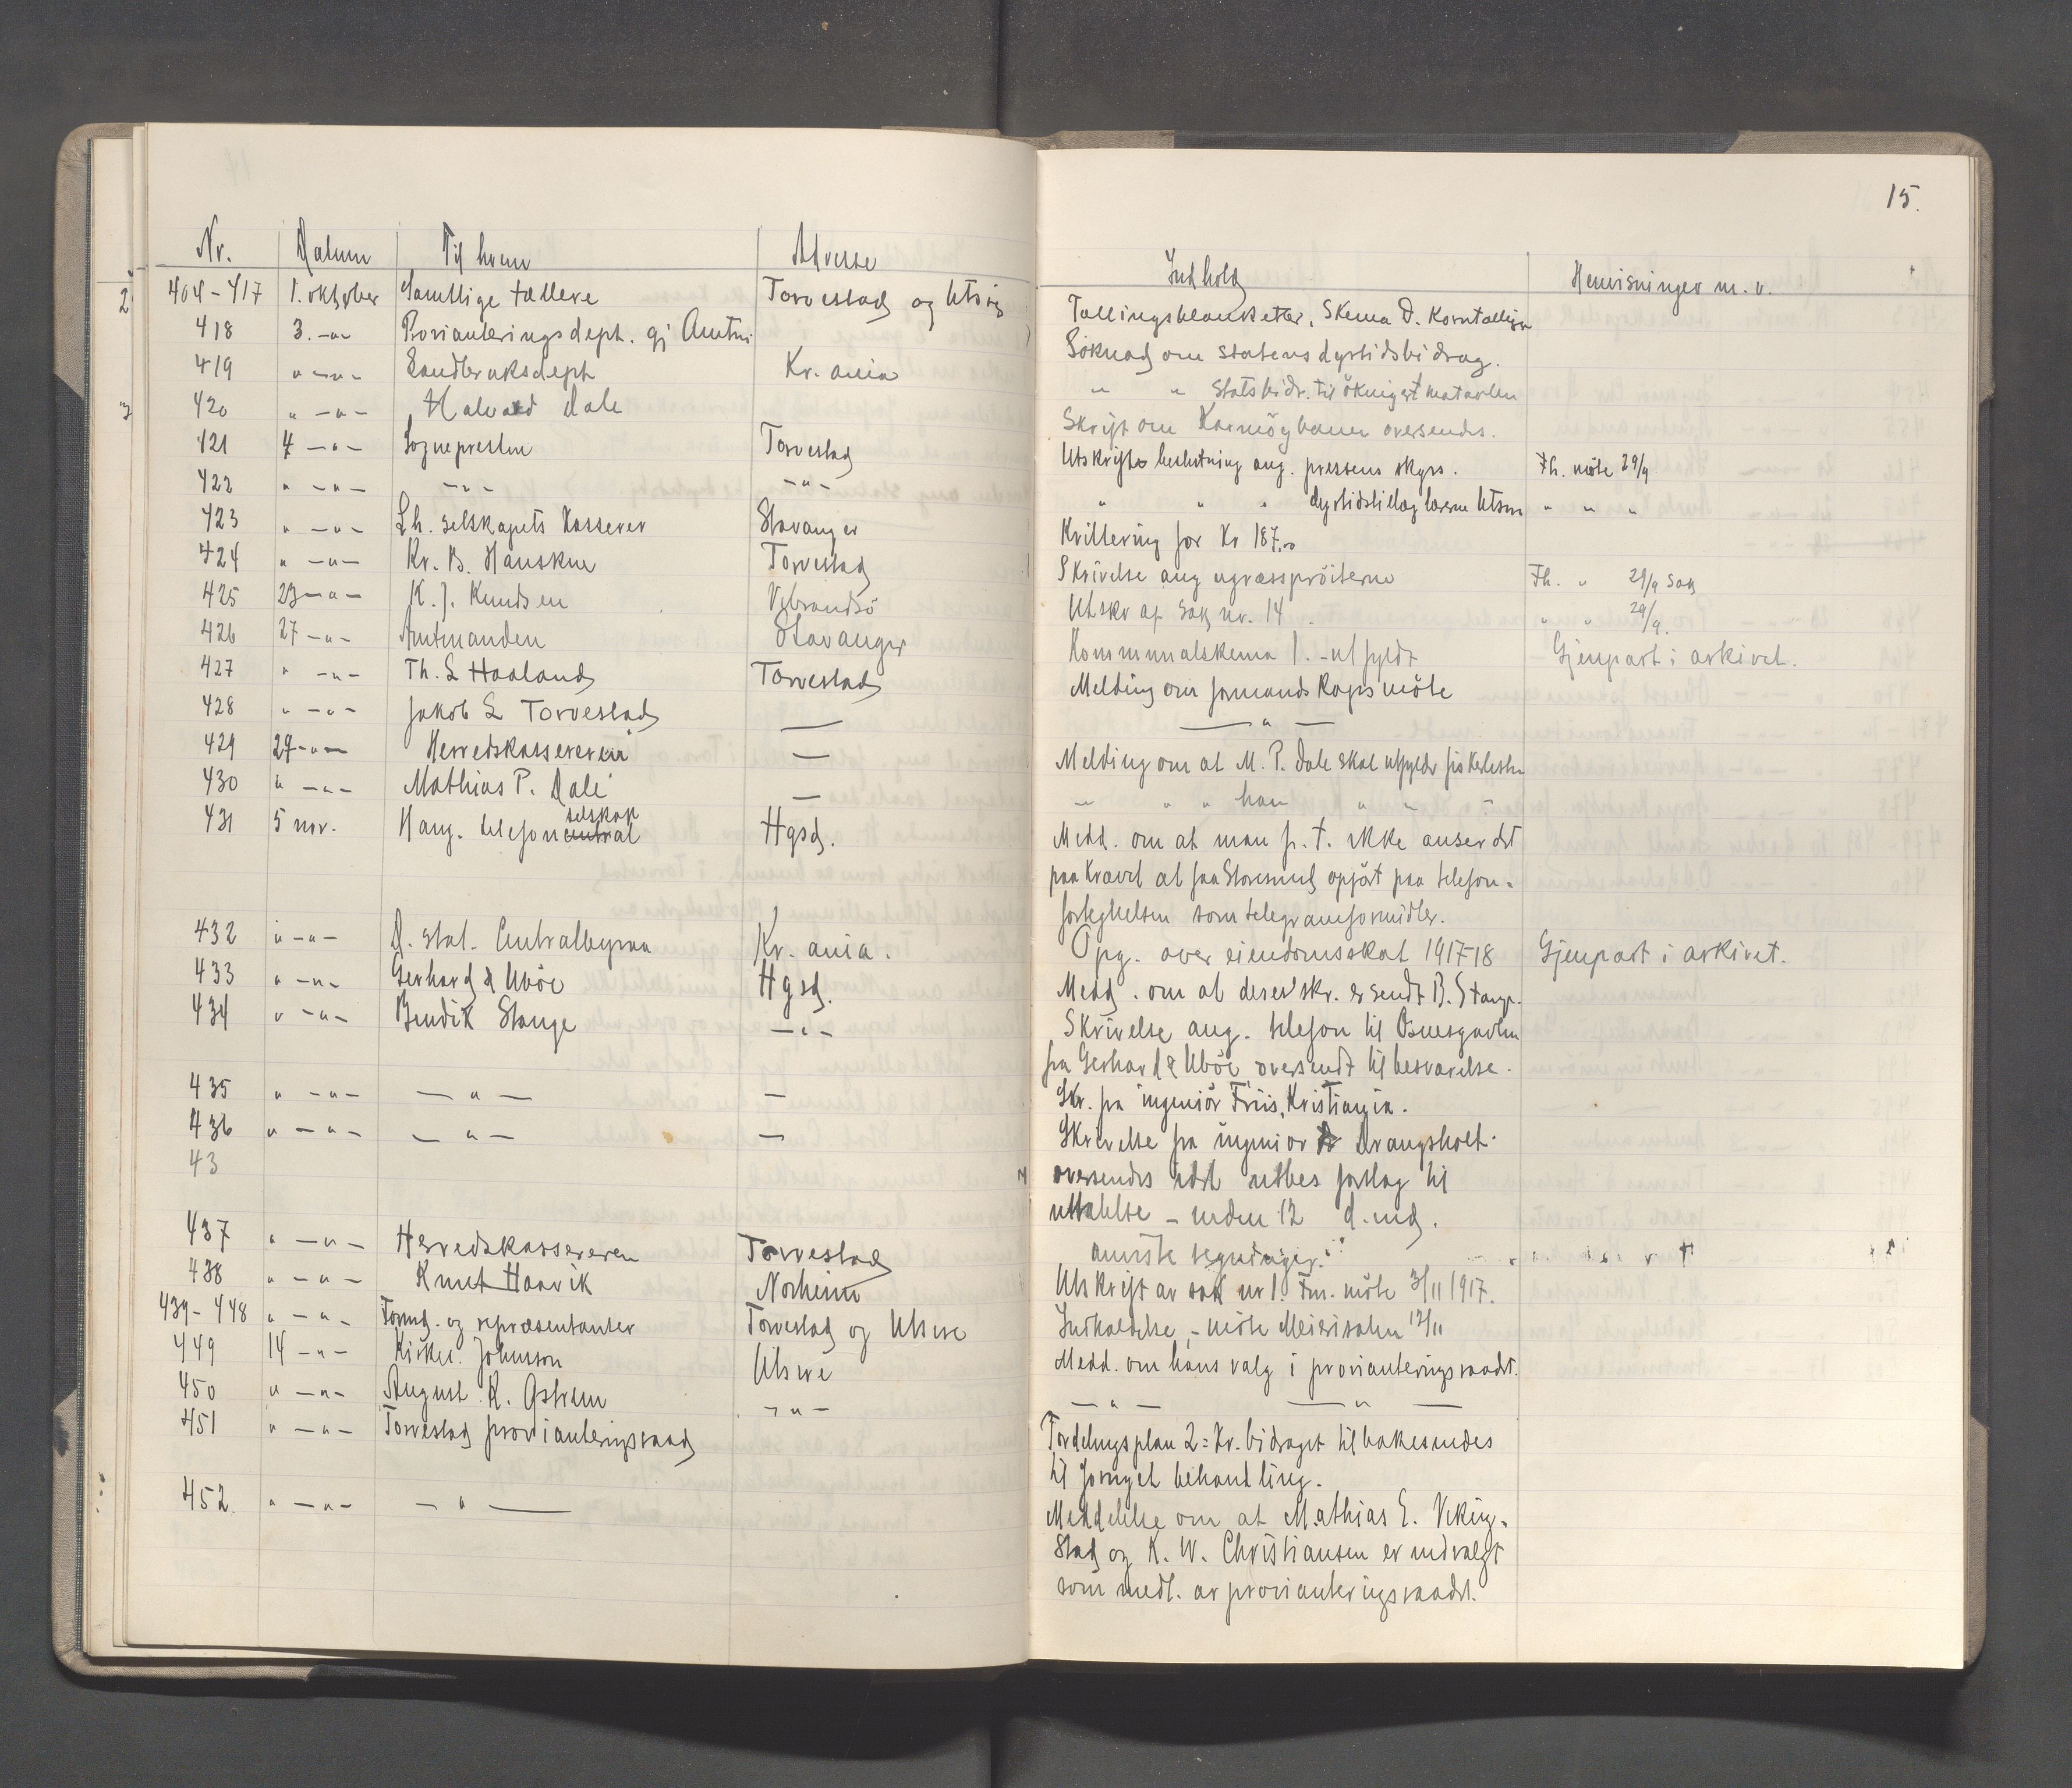 15.
Nr. Datum Til hvem Adresse Indhold Henvisninger m. v.
404-417 1. oktober Samtlige tællere Torvestad og Utsire Tællingsblanketter, Skema D. Korntælling
418 3. -"- Provianteringsdept. gj Amtm. Søknad om statens dyrtidsbidrag.
419 " -"- Landbruksdept Kr. ania " " Statsbidr. til økning av matavlen
420 " -"- Halvard Dale Skrift om Karmöybanen oversendes.
421 4 -"- Sognepresten Torvestad Utskrift beslutning ang. prestens skyss. Fh. möte 29/9.
422 " -"- -"- -"- " " " dyrtidstillæg lærerne Utsire " " "
423 " -"- Lh. selskapets kasserer Stavanger Kvittering for Kr 187.00
424 " -"- Kr. B. Hansken Torvestad Skrivelse ang ugræssprøiterne Fh. " 29/9 sak
425 23 -"- K. J. Knudsen Vibrandsö Utskr af sak nr. 14 " " 29/9.
426 27 -"- Amtmanden Stavanger Kommunalskema 1. - utfyldt Gjenpart i arkivet.
427 " -"- Th. L Haaland Torvestad Melding om formandskapsmöte
428 " -"- Jakob L Torvestad — — " —
429 29 -"- Herredskassereren — Melding om at M. P. Dale skal utfylde fiskerlisten
430 " -"- Mathias P. Dale — " " " han " " "
431 5 nov. Haug. telefoncentral selskap Hgsd. Medd. om at man p. t. ikke anser det
paakrævet at faa Storesund opført paa telefon-
forteignelsen som telegramformidler.
432 " -"- D. stat. Centralbyraa Kr. ania. Opg. over eiendomsskat 1917-18 Gjenpart i arkivet.
433 " -"- Gerhard & Uböe Hgsd. Medd. om at deres skr. er sendt B. Stange.
434 " -"- Bendik Stange -"- Skrivelse ang. telefon til Osnesgavlen
fra Gerhard & Uböe oversendt til besvarelse.
435 " -"- — " — — Skr. fra ingeniör Friis, Kristiania.
436 " -"- — " — — Skrivelse fra ingeniør Drangsholt
43 oversendes idet utbes forslag til
uttalelse - inden 12 d. md.
437 " -"- Herredskassereren Torvestad
438 " -"- Knut Haavik Norheim Utskrift av sak nr 1. Fm. möte 3/11 1917.
439-448 " -"- Formd. og repræsentanter Torvestad og Utsire Indkaldelse, - möte Meierisalen 17/11
449 14 -"- Kirkes. Johnson Utsire Medd. om hans valg i provianteringsraadet.
450 " -"- August K. Astrem -"- — " — — " —
451 " -"- Torvestad provianteringsraad Fordelingsplan 2: Kr. bidraget tilbakesendes
til fornyet behandling.
452 " -"- — " — Meddelelse om at Mathias E. Viking-
stad og K. W. Christiansen er indvalgt
som medl. av provianteringsraadet.